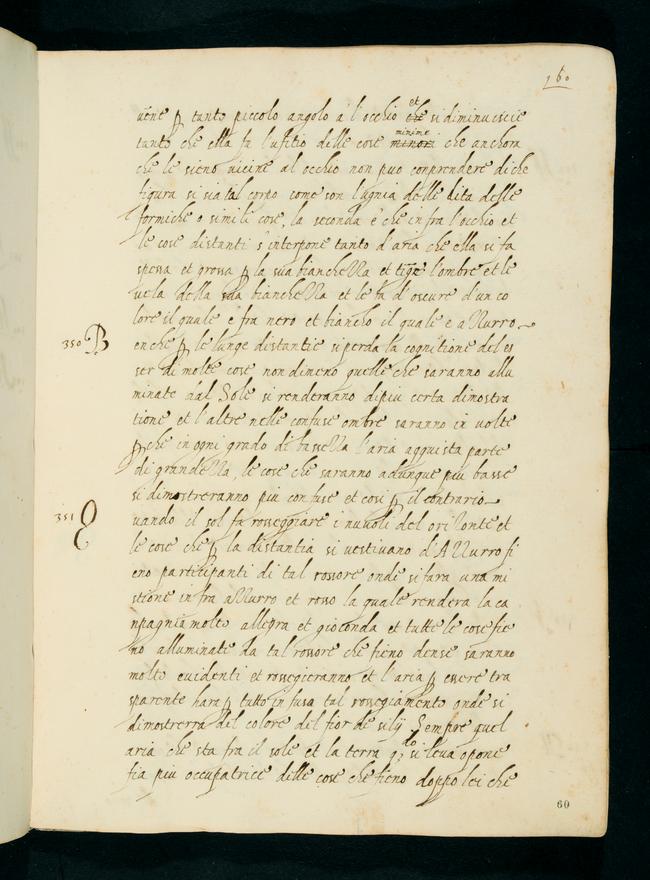 160
uene ꝑ tanto piccolo angolo a l'occhio et si diminuiscie
tanto che ella fa l'ufitio delle cose minime minori che anchora
che le sieno uicine al occhio non puo conprendere di che
figura si sia tal corpo come son l'ugnia delle dita delle
formiche o simili cose, la seconda è che infra l'occhio et
le cose distanti s'interpone tanto d'aria che ella si fa
spessa et grossa ꝑ la sua bianchezza et tigne l'ombre et le
uela della sua bianchezza et le fa d'oscure d'un co
lore il quale è fra nero et biancho il quale e azzurro
350 B
enche ꝑ le lunge distantie si perda la cognitione del es
ser di molte cose nondimeno quelle che saranno allu
minate dal Sole si renderanno di piu certa dimostra
tione et l'altre nelle confuse ombre saranno inuolte
ꝑche in ogni grado di bassezza l'aria acquista parte
di grandezza, le cose che saranno adunque piu basse
si dimostreranno piu confuse et cosi ꝑ il contrario
351 Q
uando il sol fa rosseggiare i nuuoli del orizonte et
le cose che ꝑ la distantia si uestiuano d'Azzurro fi
eno participanti di tal rossore onde si fara una mi
stione infra azzurro et rosso la quale rendera la ca
npagnia molto allegra et gioconda et tutte le cose fie
no alluminate da tal rossore che fieno dense saranno
molto euidenti et rosseggieranno et l'aria ꝑ essere tra
sparente hara ꝑ tutto infusa tal rosseggiamento onde si
dimosterra del colore del fior de silij Sempre quel
aria che sta fra il sole et la terra qdo si leua o pone
fia piu occupatrice delle cose che fieno doppo lei che
60